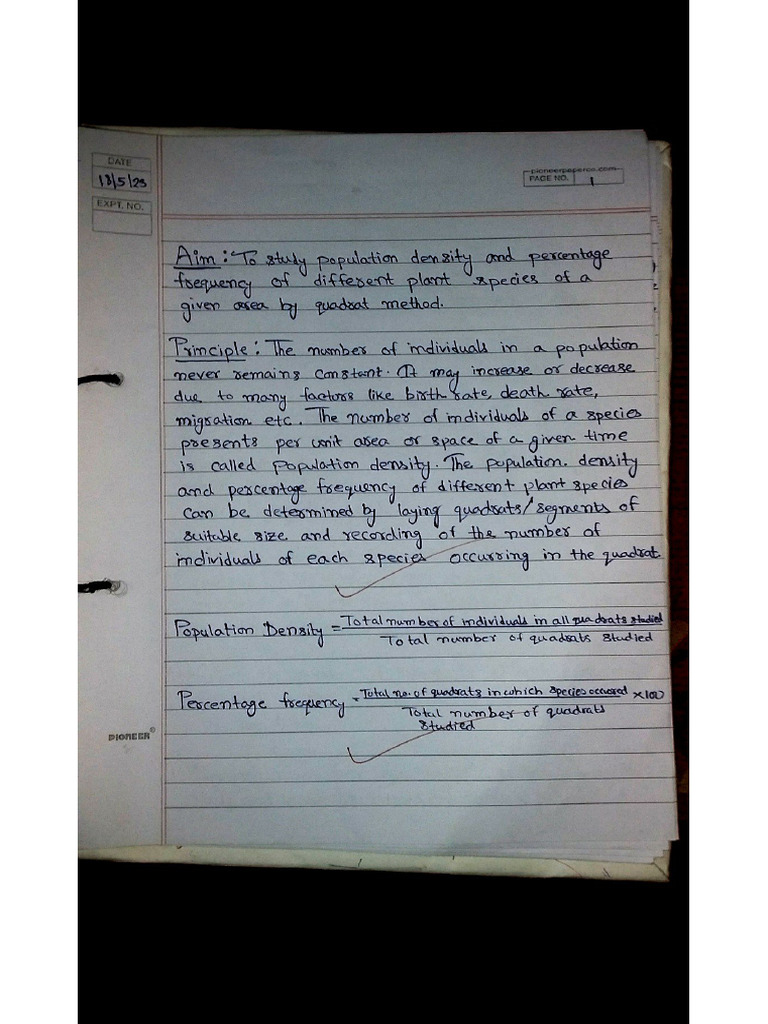 DATE
18/5/23
EXPT. NO.
pioneerpaperco.com
PAGE NO. 1
Aim: To study population density and percentage
frequency of different plant species of a
given area by quadrat method.
Principle: The number of individuals in a population
never remains constant. It may increase or decrease
due to many factors like birth rate, death rate,
migration etc. The number of individuals of a species
presents per unit area or space of a given time
is called Population density. The population. density
and percentage frequency of different plant species
can be determined by laying quadrats/segments of
suitable size and recording of the number of
individuals of each species occurring in the quadrat.
Population Density = Total number of individuals in all quadrats studied
Total number of quadrats studied
Percentage frequency = Total no. of quadrats in which species occured ×100
Total number of quadrats
studied
PIONEER®